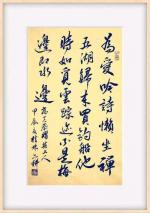 為愛吟詩懶坐禪
五湖歸來買釣船他
時如覓雲踪迹不是梅
邊即水邊